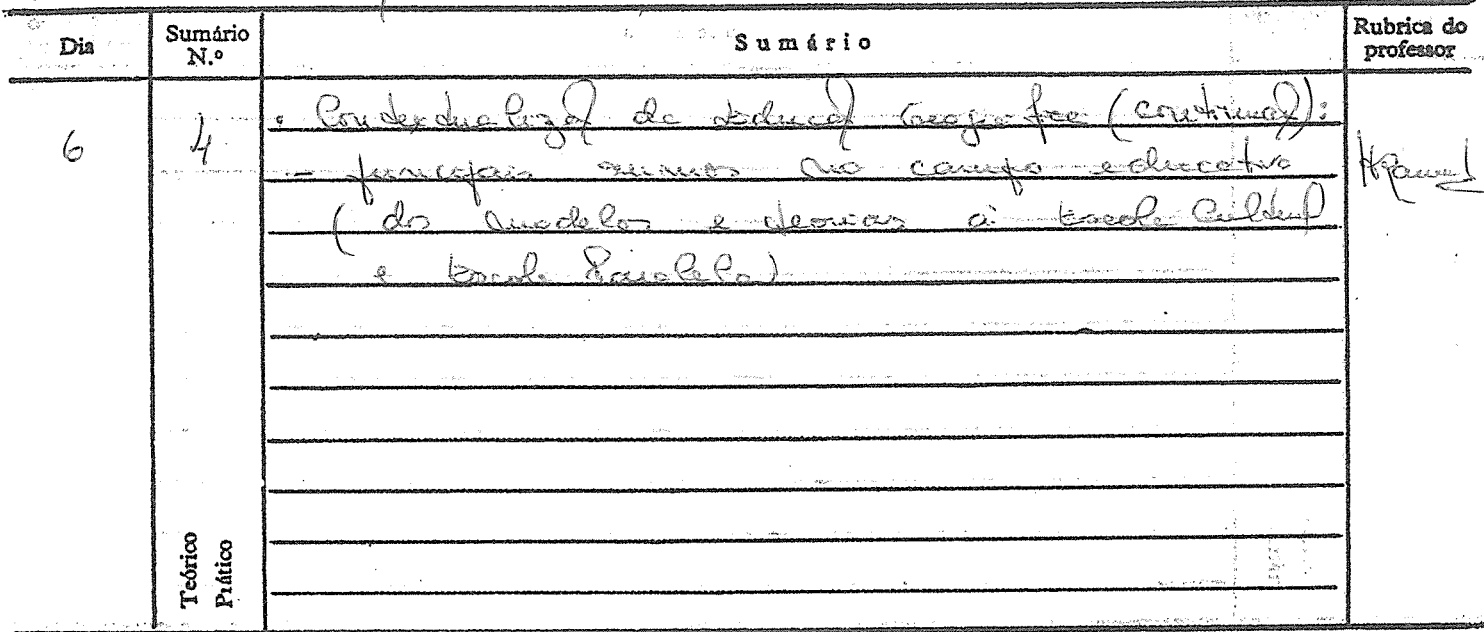 Dia Sumário N.º Sumário Rubrica do professor
6 4 • Contextualizaç da Educaç Geográfica (continuaç):
- principais no campo educativo
(dos modelos e teorias à Escola Cultural
e Escola Paralela)
Teórico
Prático